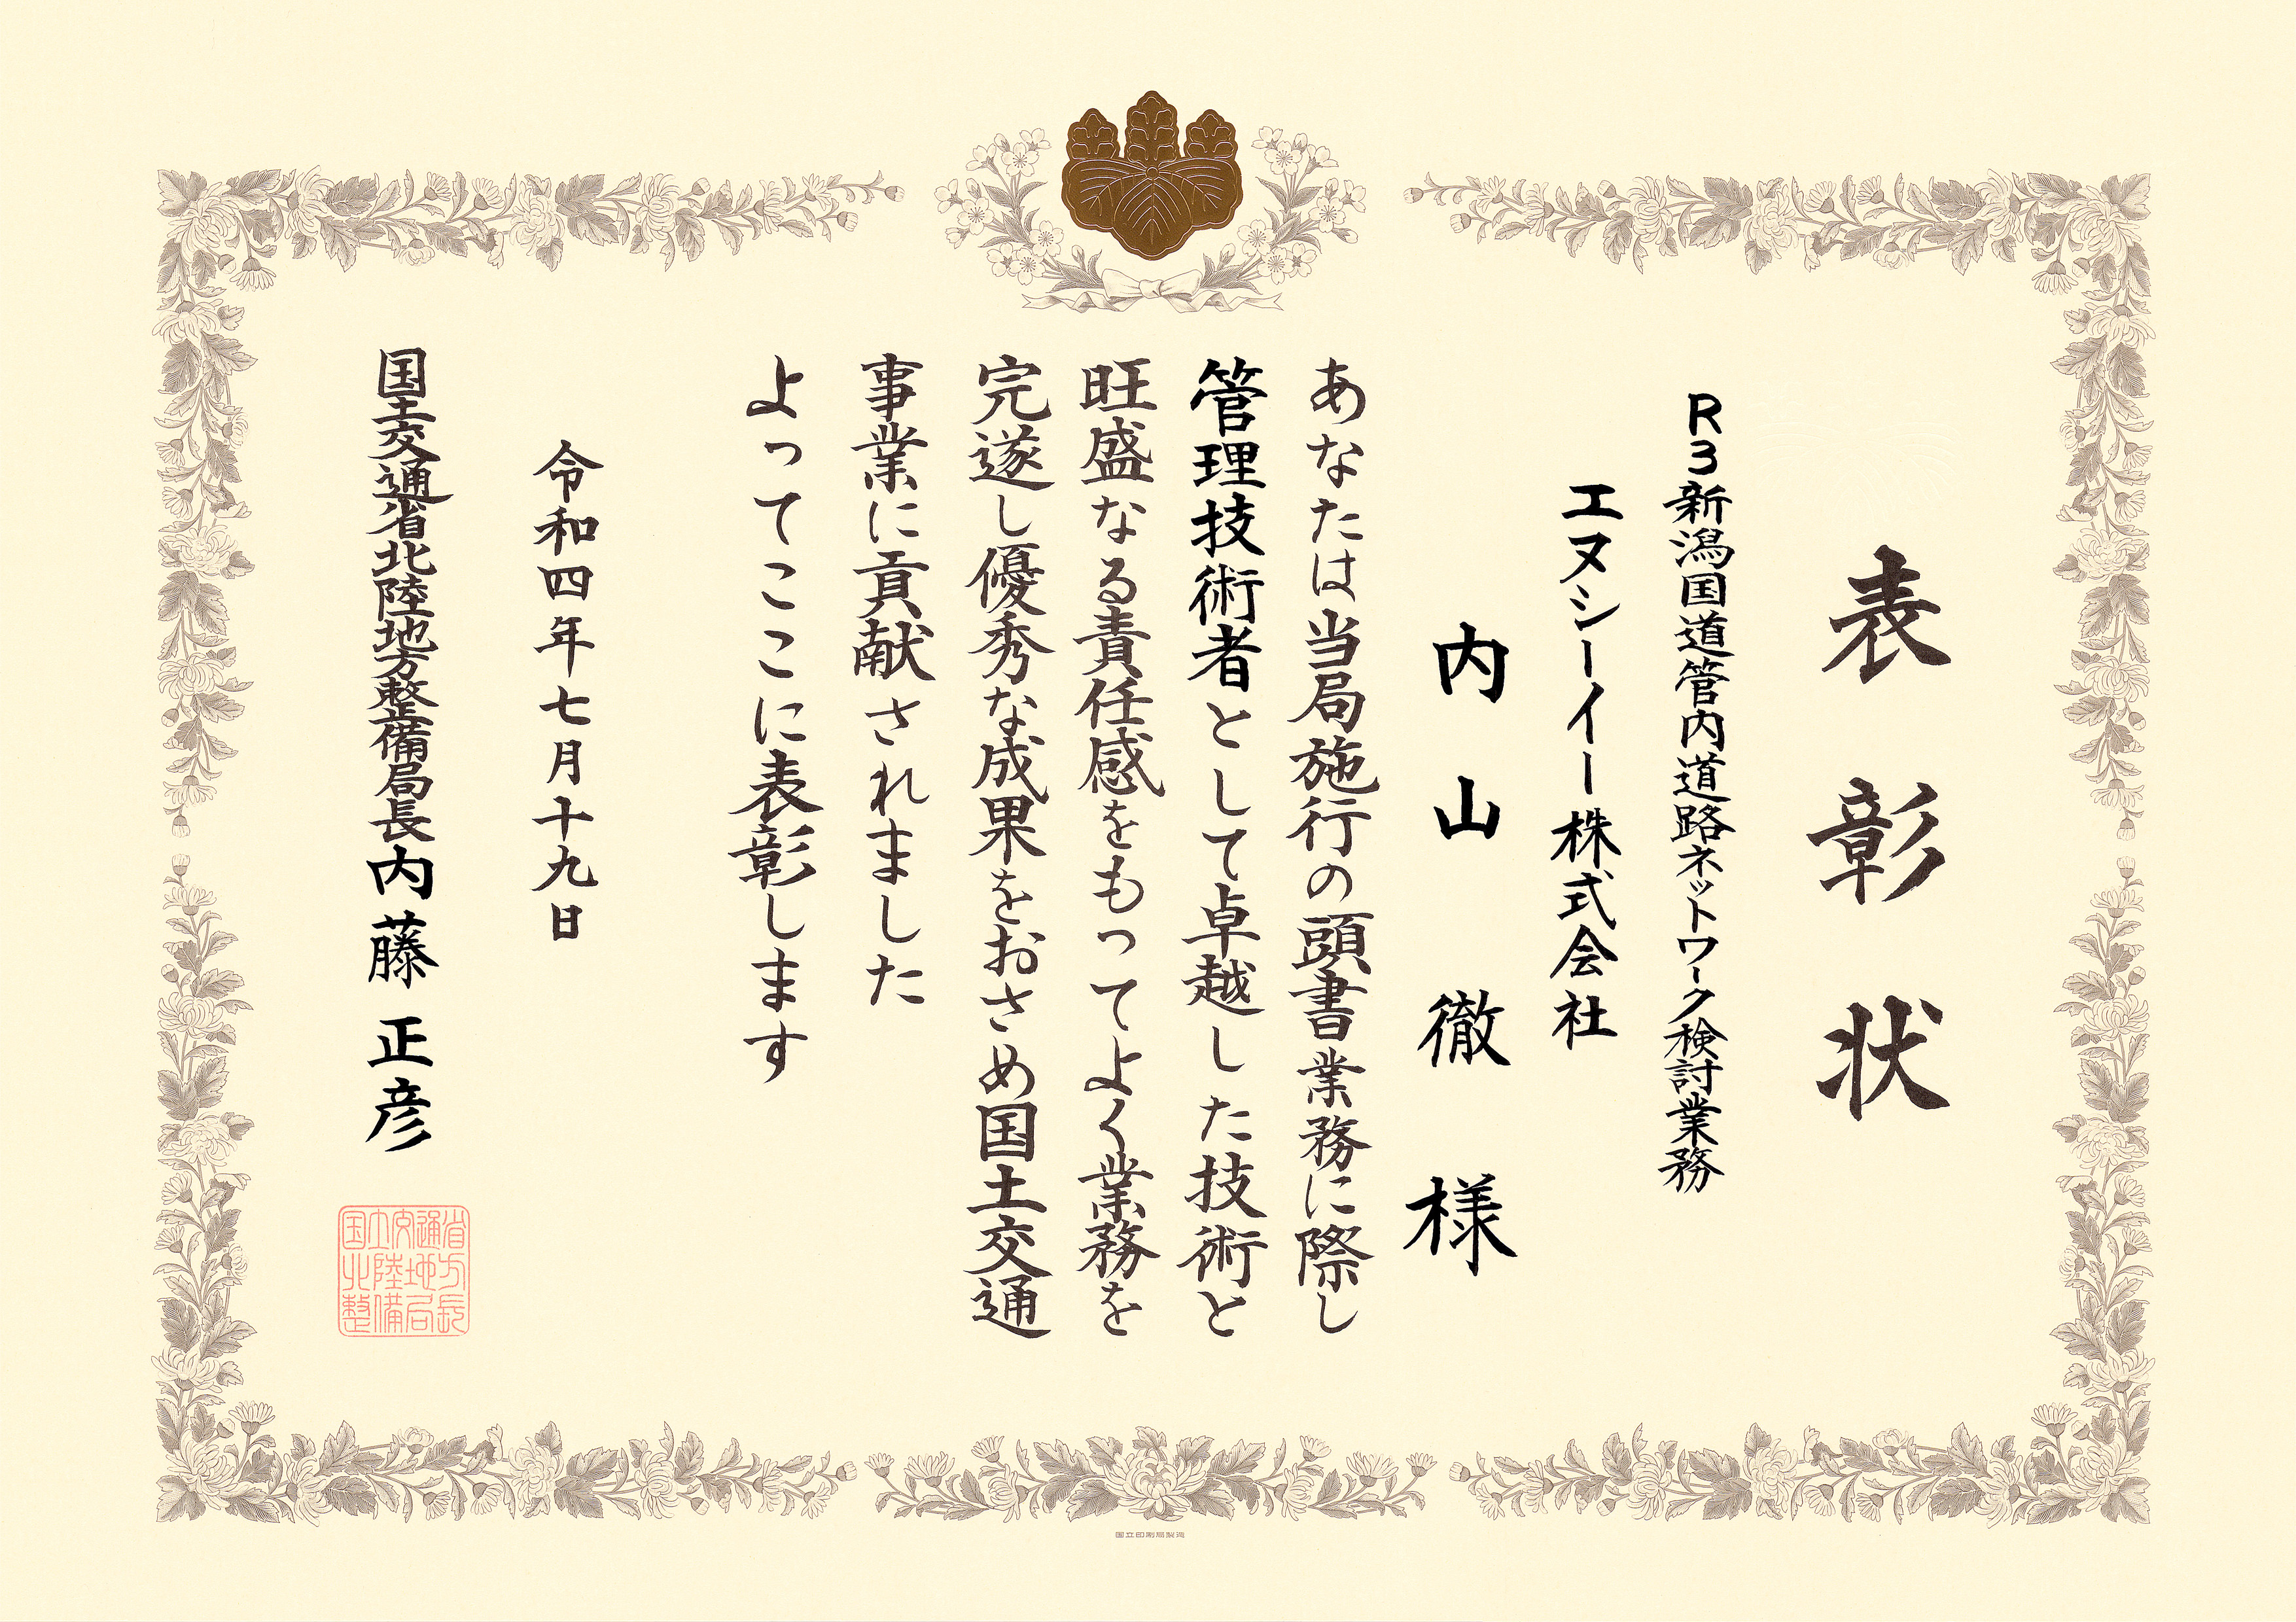 表彰状
R3新潟国道管内道路ネットワーク検討業務
エヌシーイー株式会社
内山徹様
あなたは当局施行の頭書業務に際し
管理技術者として卓越した技術と
旺盛なる責任感をもってよく業務を
完遂し優秀な成果をおさめ国土交通
事業に貢献されました
よってここに表彰します
令和四年七月十九日
国土交通省北陸地方整備局長内藤正彦
国土交通省
北陸地方
整備局長
国立印刷局製造